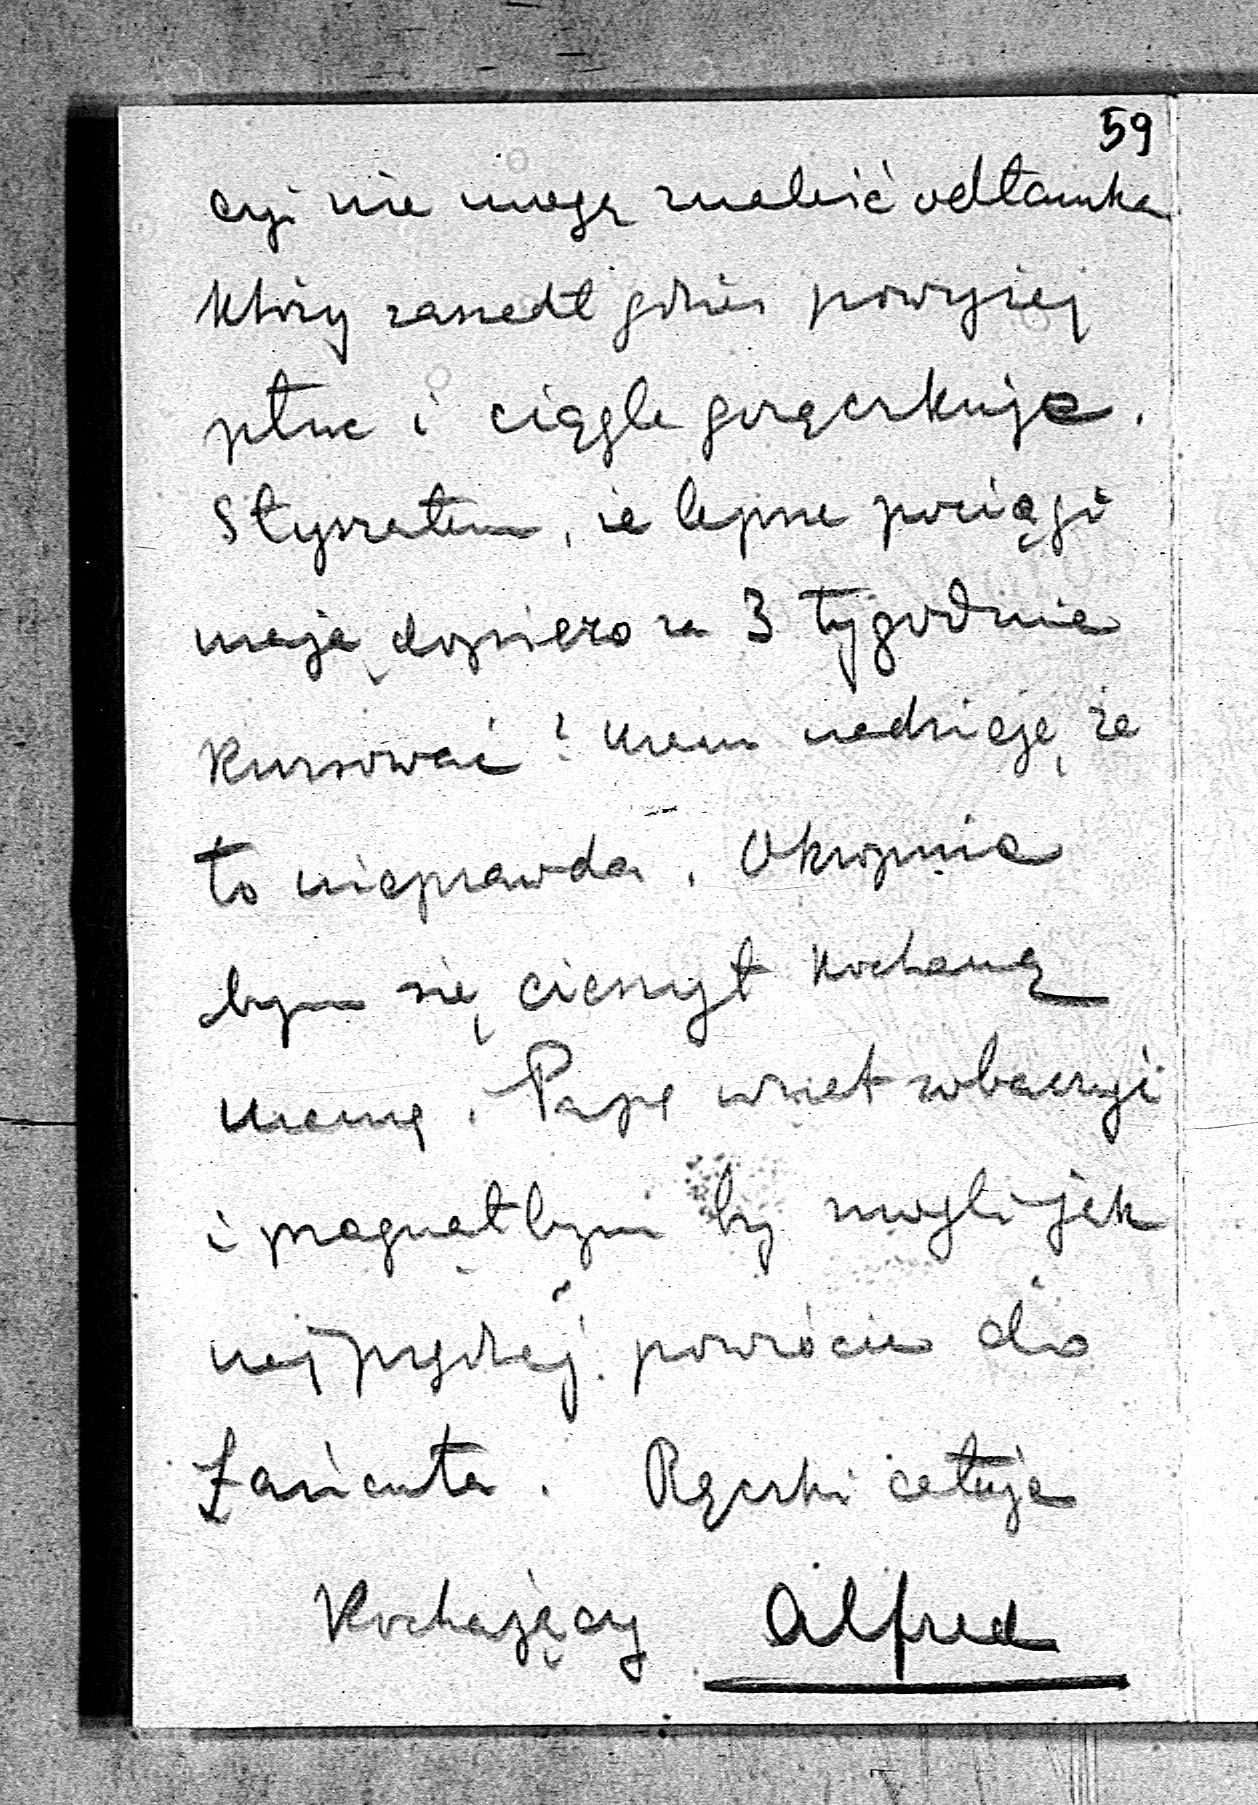 59
cyi nie mogą znaleść odłamka
który zaszedł gdzieś powyżej
płuc i ciągle gorączkuje.
Słyszałem, że lepsze pociągi
mają dopiero za 3 tygodnie
kursować! Mam nadzieję, że
to nieprawda. Okropnie
bym się cieszył kochaną
Mamę. Papę wnet zobaczyć
i pragnąłbym by mogli jak
najprędzej powrócić do
Łańcuta. Rączki całuję
Kochający Alfred